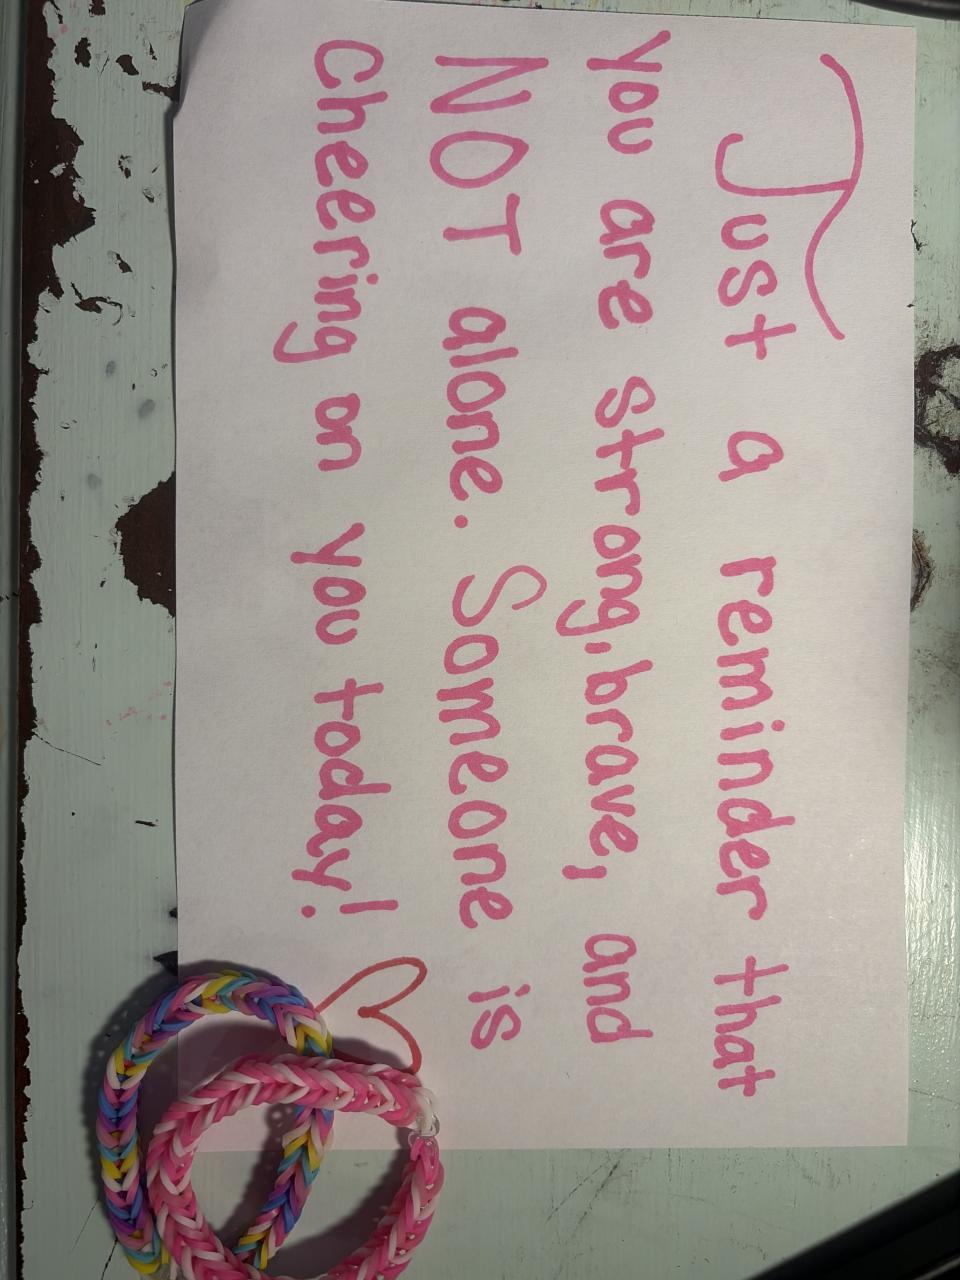 Just a reminder that
you are strong, brave, and
NOT alone. Someone is
Cheering on you today!